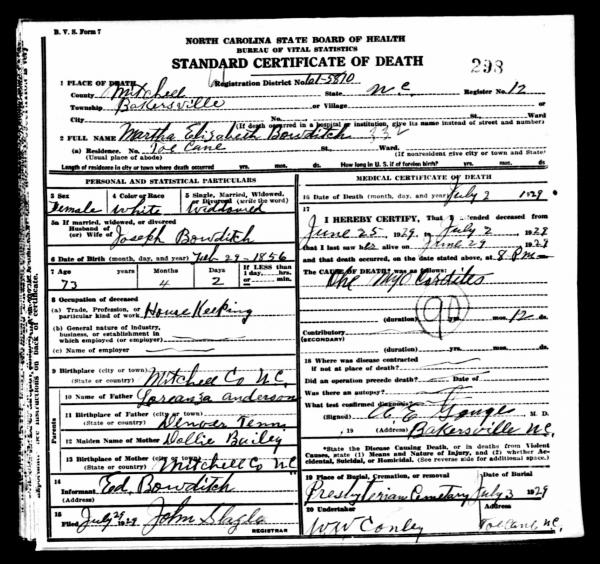 B. V. S. Form 7
NORTH CAROLINA STATE BOARD OF HEALTH
BUREAU OF VITAL STATISTICS
STANDARD CERTIFICATE OF DEATH
298
1 PLACE OF DEATH Registration District No. 61-5810
County Mitchell State N C Register No. 12
Township Bakersville or Village or
City No. St., Ward
(If death occurred in a hospital or institution, give its name instead of street and number)
2 FULL NAME Martha Elizabeth Bowditch 332
(a) Residence. No. Toe Cane St., Ward
(Usual place of abode) (If nonresident give city or town and State)
Length of residence in city or town where death occurred yrs. mos. ds. How long in U. S. if of foreign birth? yrs. mos. ds.
PERSONAL AND STATISTICAL PARTICULARS
3 Sex 4 Color or Race 5 Single, Married, Widowed, or Divorced (write the word)
Female White Widdowed
5a If married, widowed, or divorced
Husband of
(or) Wife of Joseph Bowditch
6 Date of Birth (month, day, and year) Feb-29-1856
7 Age years Months Days If LESS than 1 day, hrs. or min.
73 4 2
8 Occupation of deceased
(a) Trade, Profession, or particular kind of work House Keeping
(b) General nature of industry,
business, or establishment in
which employed (or employer)
(c) Name of employer
9 Birthplace (city or town)
(State or country) Mitchell Co N.C.
10 Name of Father Anderson
11 Birthplace of Father (city or town)
(State or country) Denver Tenn
12 Maiden Name of Mother Dollie Bailey
13 Birthplace of Mother (city or town)
(State or country) Mitchell Co NC
Parents
14
Informant Ed. Bowditch
(Address)
15
Filed July 29 1929 John Slagle
REGISTRAR
MEDICAL CERTIFICATE OF DEATH
16 Date of Death (month, day, and year) July 2 1929
17
I HEREBY CERTIFY, That I attended deceased from
June 25 1929, to July 2 1929
that I last saw her alive on June 29 1929
and that death occurred, on the date stated above, at 8 Pm
The CAUSE OF DEATH* was as follows:
Chr Myo Carditis
90
(duration) yrs. mos. 12 ds.
Contributory
(SECONDARY)
(duration) yrs. mos. ds.
18 Where was disease contracted
if not at place of death?
Did an operation precede death? Date of
Was there an autopsy?
What test confirmed diagnosis?
(Signed) A. E. Gouge M. D.
, 19 (Address) Bakersville N.C.
*State the Disease Causing Death, or in deaths from Violent
Causes, state (1) Means and Nature of Injury, and (2) whether Accidental, Suicidal, or Homicidal. (See reverse side for additional space.)
19 Place of Burial, Cremation, or removal Date of Burial
Presbyterian Cemetery July 3 1929
20 Undertaker Address
W W Conley Toe Cane N.C.